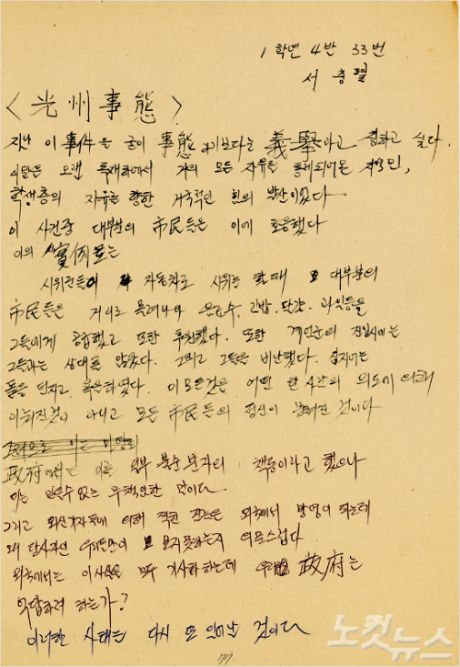 1학년 4반 33번
서 충렬
〈光州事態〉
지난 이 事件을 굳이 事態 라기보다는 義擧라고 칭하고 싶다.
이 오랜 독재하에서 거의 모든 자유를 통제되어온 젊은이,
학생층의 자유를 향한 거국적인 힘의 발산이었다
이 사건중 대부분의 市民들은 이에 호응했다
이의 實例로는
시위전들이 자동차로 시위를 할때 대부분의
市民들은 거리로 몰려나와 음료수, 김밥, 달걀, 과일등을
그들에게 공급했고 또한 후원했다. 또한 계엄군의 진입시에는
그들과는 상대를 않았다. 그리고 그들을 비난했다. 심지어는
돌을 던지고 욕을하였다. 이 모든것은 어떤 한 사람의 의도에 의해
이뤄진것이 아니고 모든 市民들의 정신이 뭉쳐진 것이다
政府에서는 이를 일부 불순분자의 책동이라고 했으나
이는 믿을수 없는 무책임한 말이다
그리고 외신기자들에 의해 찍힌 필름은 외국에서 방영이 되는데
왜 당사자인 우리들만이 보지못하는지 의문스럽다
외국에서는 이사실을 모두 기사화하는데 우리 政府는
은닉하려 하는가?
이러한 사태는 다시 또 일어날 것이다
노컷뉴스